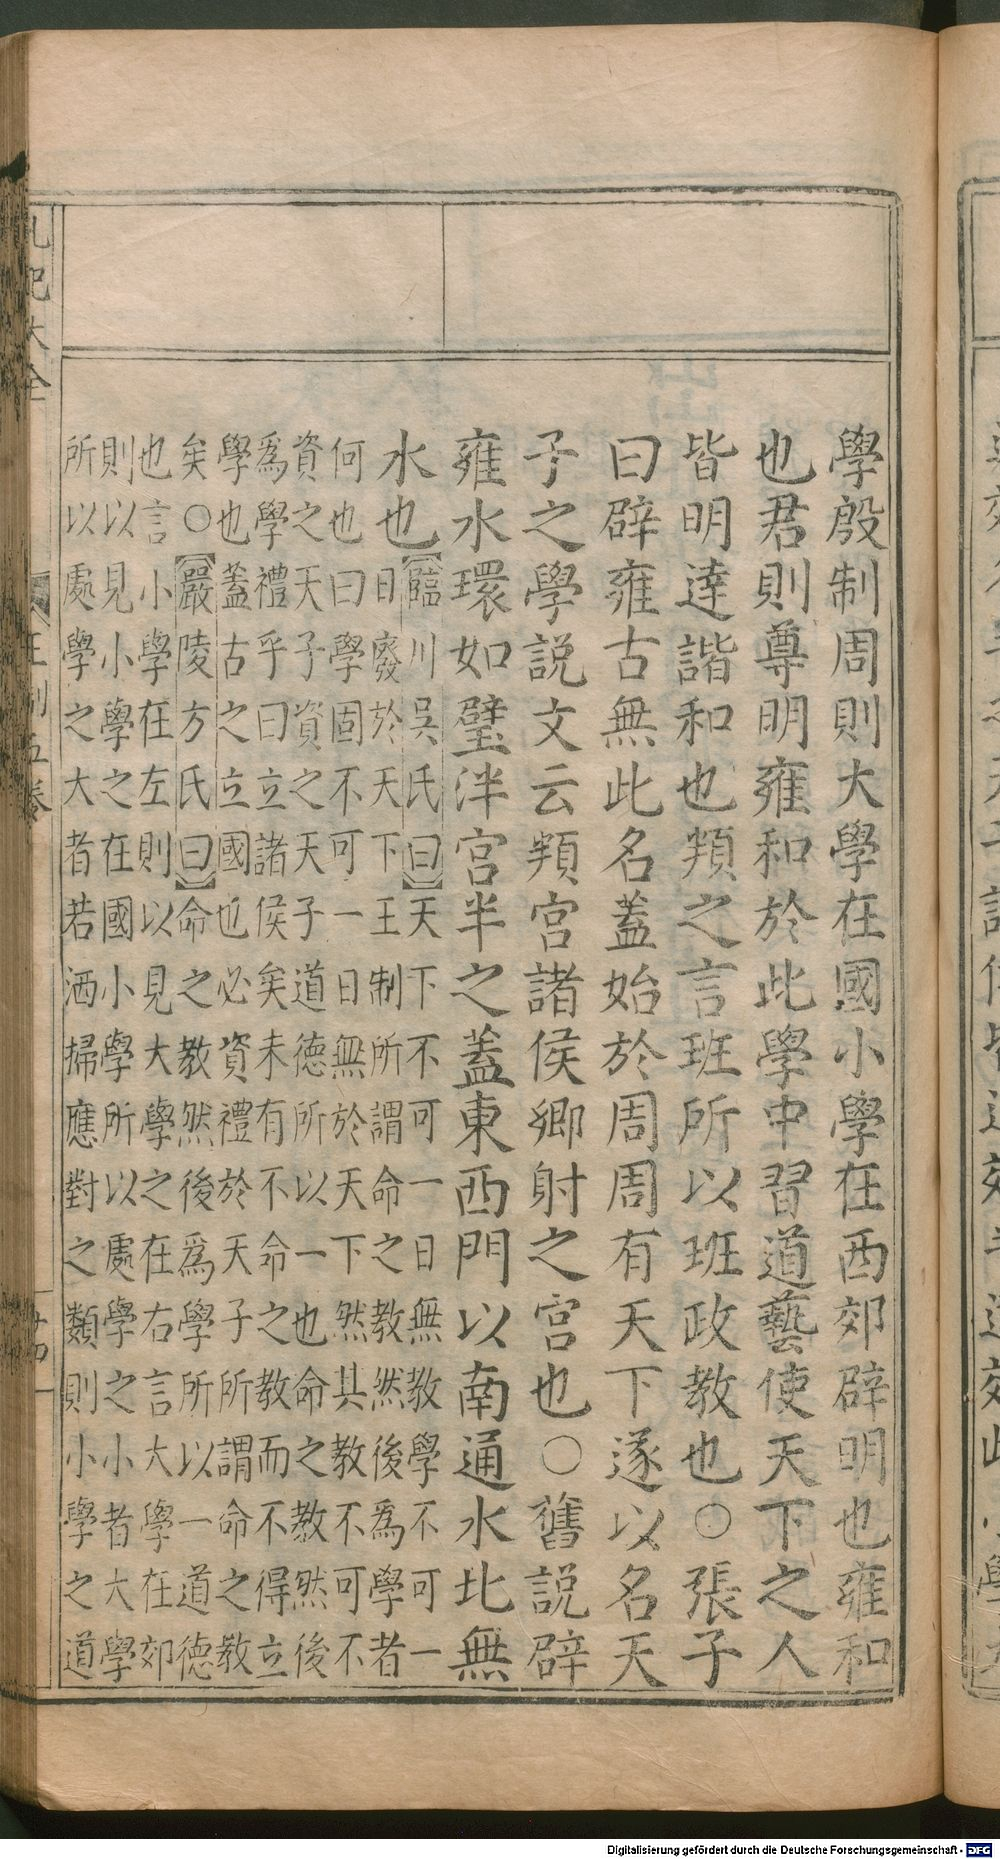 學殷制周則大學在國小學在西郊辟明也雍和
也君則尊明雍和於此學中習道藝使天下之人
皆明達諧和也頖之言班所以班政教也○張子
曰辟雍古無此名蓋始於周周有天下遂以名天
子之學說文云頖宮諸侯鄉射之宮也○舊說辟
雍水環如璧泮宮半之蓋東西門以南通水北無
水也
臨川吳氏曰天下不可一日無教學不可一
日廢於天下王制所謂命之教然後爲學者
何也曰學固不可一日無於天下然其教不可不
資之天子資之天子道德所以一也命之教然後
爲學禮乎曰立諸侯矣未有不命之教而不得立
學也蓋古之立國也必資禮於天子所謂命之教
矣○嚴陵方氏曰命之教然後爲學所以一道德
也言小學在左則以見大學之在右言大學在郊
則以見小學之在國小學所以處學之小者大學
所以處學之大者若洒掃應對之類則小學之道
禮記大全
王制五卷
Digitalisierung gefördert durch die Deutsche Forschungsgemeinschaft - DFG